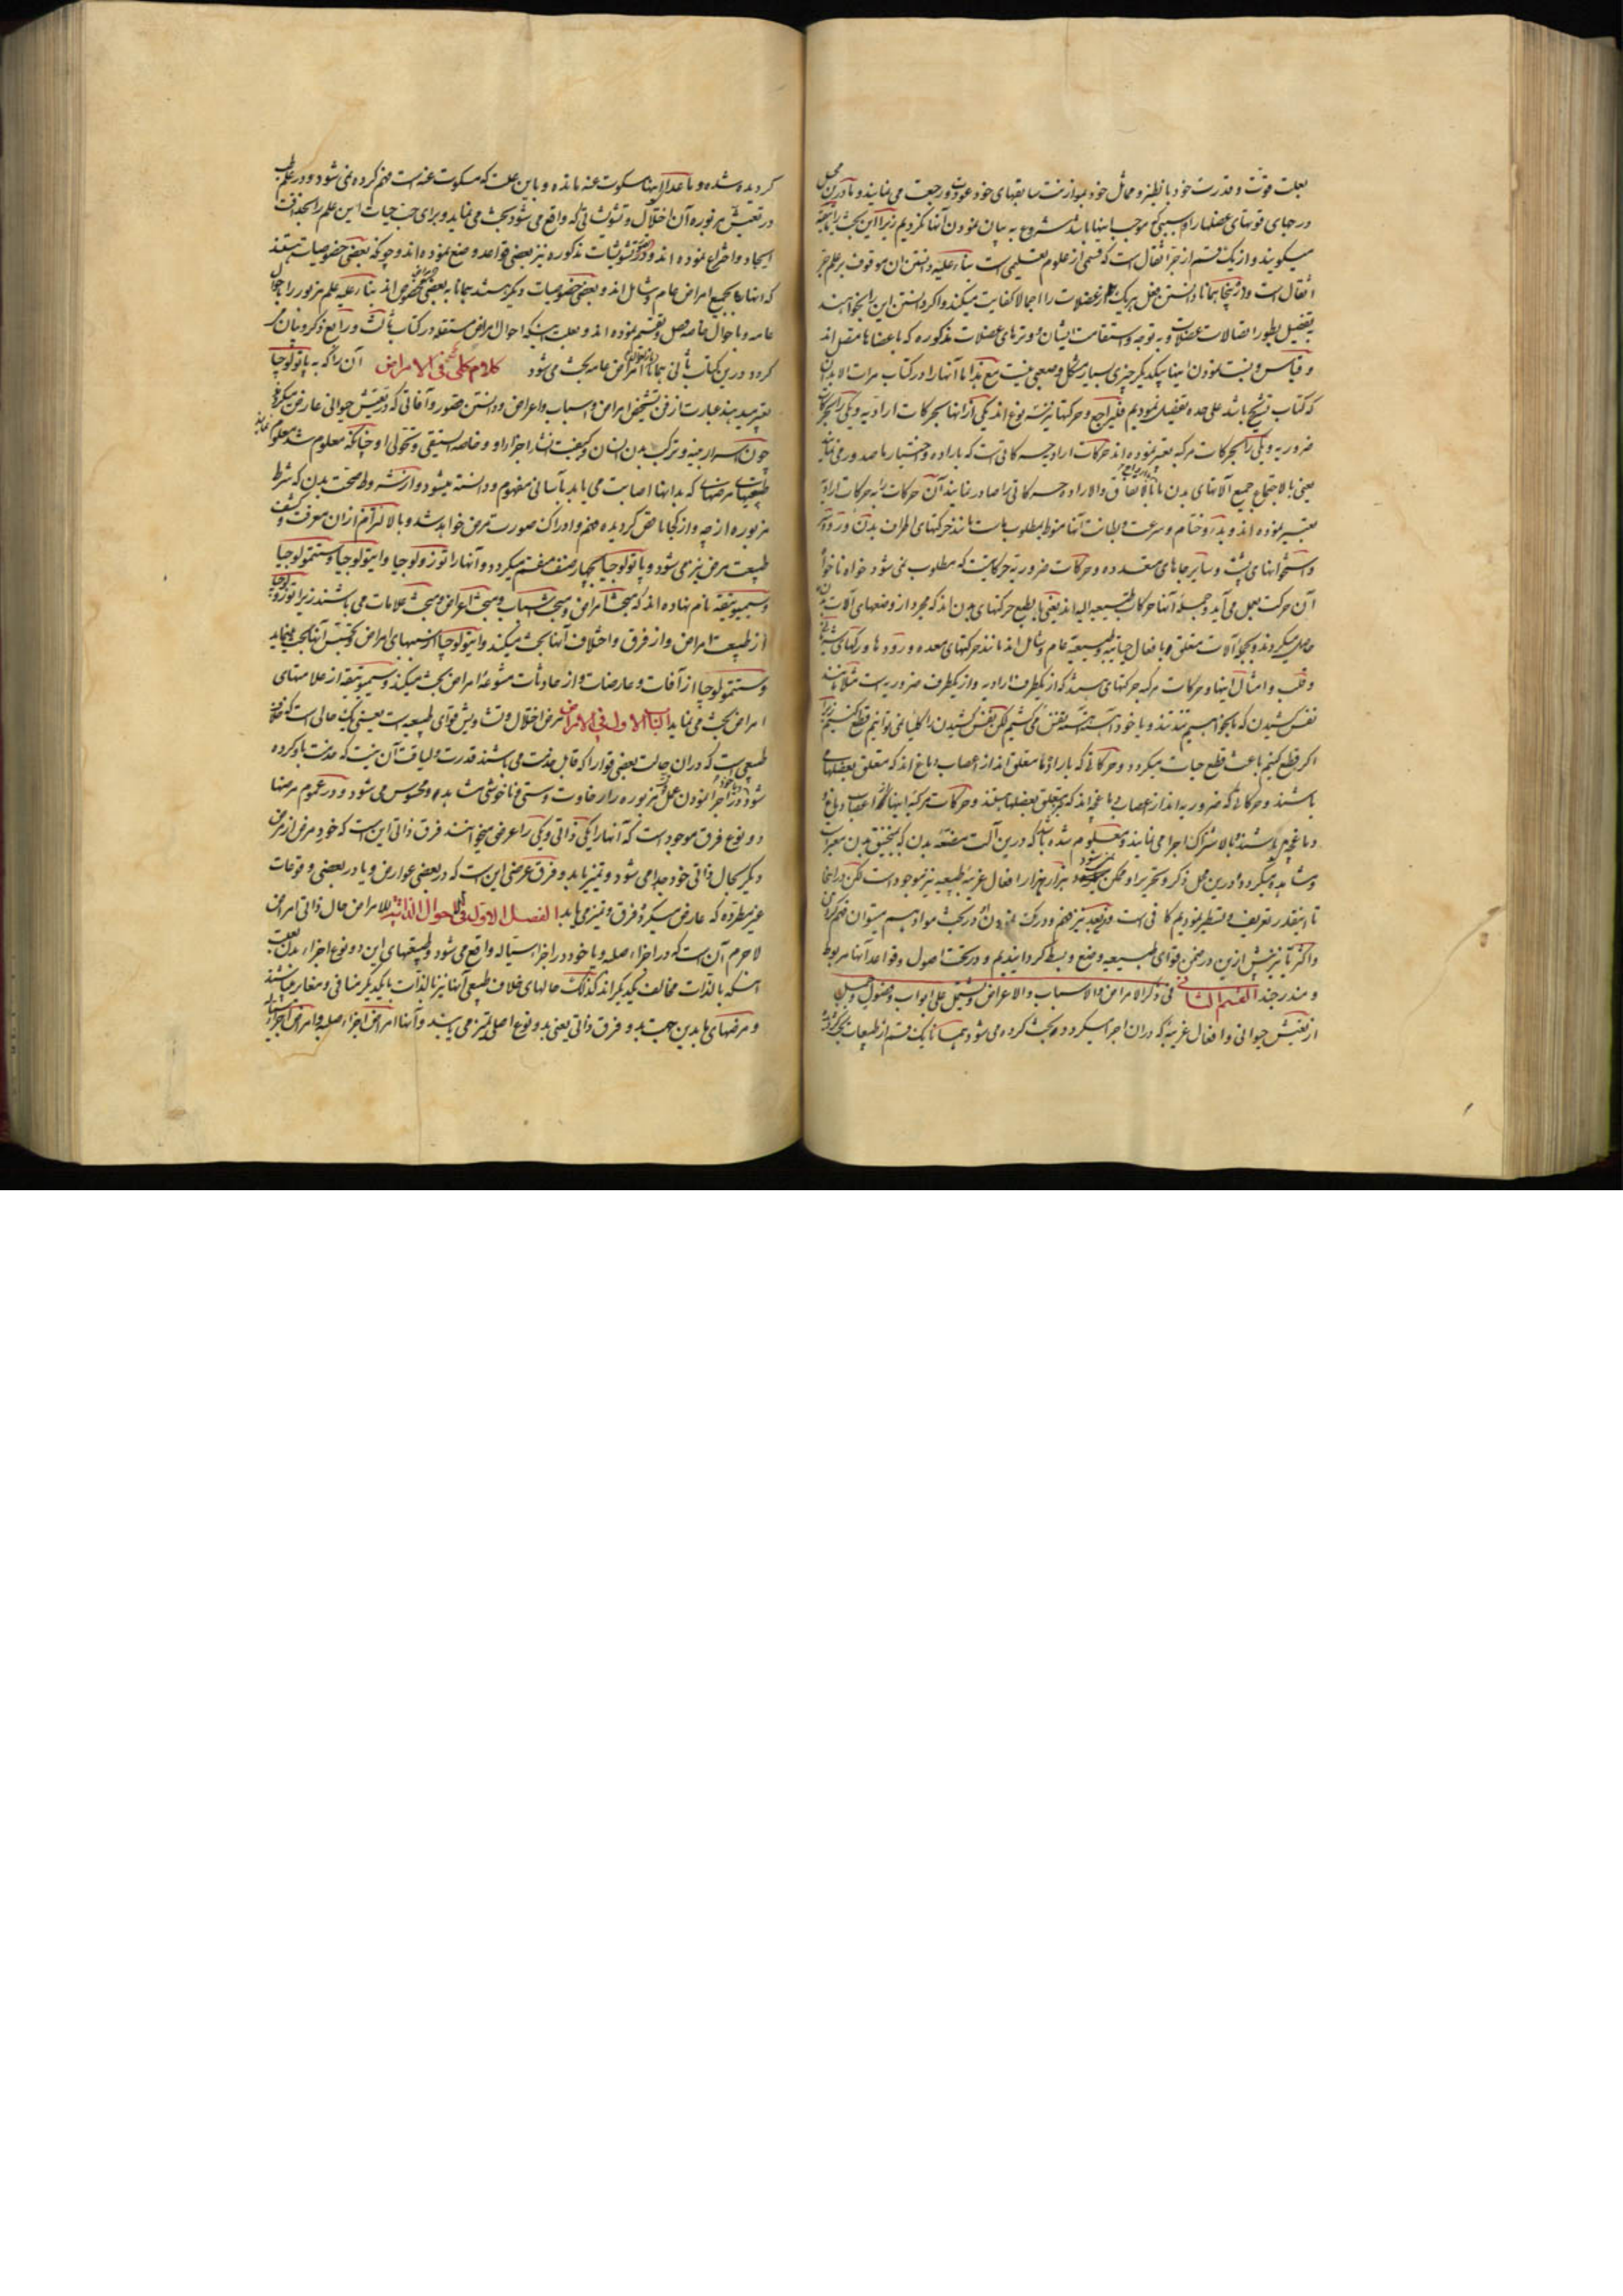 بعلت قوت و قدرت خود با نظیر و مماثل خود بموازنت سابقهای خود عودت و رجعت می نمایند و با درین محل
در جای قوتهای عضلها را و سببی که موجب اینها باشد شروع به بیان نمودن آنها نکردیم زیرا این بحث را
میکویند و از یک قسم از جر اثقال است که قسمی از علوم تعلیمی است بناء علیه دانستن آن موقوف بر علم جر
اثقال است و در اینجا همانا دانستن فعل هر یک از عضلات را اجمالا کفایت میکند و اکر دانستن این را بخواهند
بتفصیل بطور اتصالات عضلات و به توجه و استقامت ایشان و وترهای عضلات مذکوره که با عضاها متصل اند
و قیاس و نسبت نمودن اینها بیکدیکر چیزی بسیار مشکل و صعبی نیست مع هذا ما آنها را در کتاب مرات الابدان
که کتاب تشریح باشد علی حده تفصیل نمودیم فلیراجع و حرکتها نیز سه نوع اند یکی از آنها بحرکات ارادیه و یکی را بحرکات
ضروریه و یکی را بحرکات مرکبه تعبیر نموده اند حرکات ارادیه حرکاتی است که باراده و اختیار ما صدور می یابند
یعنی بالاجتماع جمیع آلاتهای بدن ما بالاتفاق و الاراده حرکاتی را صادر نمایند آن حرکات را به حرکات ارادیه
تعبیر نموده اند و بدء و ختام و سرعت و بطائت آنها منوط بمطلوب ماست مانند حرکتهای اطراف بدن و
و استخوانهای پشت و سایر جاهای متعدده و حرکات ضروریه حرکاتیست که مطلوب نمی شود خواه ناخواه
آن حرکت بعمل می آید و جمله آنها حرکات طبیعیه اند یعنی بالطبع حرکتهای بدن اند که مجرد از وضعهای آلات بدن
حاصل میکردند و بجمیع آلات متعلق با فعال حیاتیه و طبیعیه عام و شامل اند مانند حرکتهای معده و روده ها و رکهای
و قلب و امثال اینها و حرکات مرکبه حرکتهای هستند که از یکطرف ارادیه و از یکطرف ضروریه است مثلا مانند
نفس کشیدن که ما بخواهیم تند تند و یا خود آهسته آهسته نفس می کشیم لکن نفس کشیدن را کلیا نمی توانیم قطع کنیم زیرا
اکر قطع کنیم باعث قطع حیات میکردد و حرکاتی که باراده ما متعلق اند از اعصاب دماغ اند که متعلق بعضلهای
باشند و حرکاتی که ضروریه اند از اعصاب دماغچه اند که متعلق بعضلها هستند و حرکات مرکبه اینها از اعصاب دماغ و
دماغچه هستند و بالاشتراک اجرا می نمایند و معلوم شده باشد که درین آلت مصنعه بدن که بمنجنیق بدن معبر است
و مشاهده میکردد و درین محل ذکر و تحریر او ممکن میشود هزار هزار افعال غریبه طبیعیه نیز موجود است لکن در اینجا
تا اینقدر تعریف و تسطیر نمودیم کافی است و بعد نیز فهم و درک نمودن در بحث مواد هم میتوان فهم کردن
و اکثر ما نیز پیش ازین در ضمن قوای طبیعیه وضع و بسط کردانیدیم و در تحت اصول و قواعد آنها مربوط
و مندرجند القسم الثانی فی ذکر الامراض و الاسباب و الاعراض و یشتمل علی ابواب و فصول و
از تعیش حیوانی و افعال غریبه که دران اجرا میکردد بحث کرده می شود همانا یک قسم از طبیعات بحث کرده
کردیده شده و ما عدا اینها مسکوت عنه مانده و باین علت که مسکوت عنه است فهم کرده نمی شود و در علم طب
در تعیش مزبوره آن اختلال و تشوشاتی که واقع می شود بحث می نماید و برای حسب حیات این علم را بحداقت
ایجاد و اختراع نموده اند و در تشویشات مذکوره نیز بعضی قواعد وضع نموده اند و چونکه بعضی خصوصیات هستند
که اینها بجمیع امراض عام و شامل اند و بعضی خصوصیات دیکر هستند همانا به بعضی مخصوص اند بناء علیه علم مزبور را باحوال
عامه و باحوال خاصه فصل و تقسیم نموده اند و بعلت اینکه احوال امراض مستقله در کتاب ثالث و رابع ذکر و بیان می
کردد و درین کتاب ثانی همانا از امراض عامه بحث می شود کلام کلی فی الامراض آن را که به پاتولوجیا
تعبیر میدهند عبارت از فن تشخیص امراض و اسباب و اعراض و دانستن قصور و آفاتی که در تعیش حیوانی عارض میکردد
چون اسرار مبنیه و ترکیب بدن انسان و کیفیت انتشار اجزاء او و خاصه او چنانکه معلوم شد معلوم
طبیعتهای مرضهای که بدانها اصابت می یابد بآسانی مفهوم و دانسته میشود و از شروط صحت بدن که شرط
مزبوره از چه و از کجا ناقص کردیده فهم و ادراک صورت مرض خواهد شد و بالالتزام از آن معرفت و کشف
طبیعت مرض نیز می شود و پاتولوجیا بچهار صنف منقسم میکردد و آنها را نوزولوجیا و ایتولوجیا و سنتمولوجیا
و سمیوتیقه نام نهاده اند که مبحث امراض و مبحث اسباب و مبحث اعراض و مبحث علامات می باشند زیرا نوزولوجیا
از طبیعت امراض و از فرق و اختلاف آنها بحث میکند و ایتولوجیا از سببهای امراض و تجسس آنها بحث مینماید
و سنتمولوجیا از آفات و عارضات و از حادثات متنوعه امراض بحث میکند و سمیوتیقه از علامتهای
امراض بحث می نماید الباب الاول فی الامراض مرض اختلال و تشاویش قوای طبیعیه است یعنی یک حالی است که خلاف
طبیعی است که دران حالت بعضی قوا را که قابل خدمت می باشند قدرت و لیاقت آن نیست که خدمت یاد کرده
شود و در اجرا نمودن عمل مزبوره زار خاوت و سستی و ناخوشی مشاهده و محسوس می شود و در عموم مرضها
دو نوع فرق موجود است که آنها را یکی ذاتی و یکی را عرضی میخوانند فرق ذاتی این است که خود مرض از مرض
دیکر بحال ذاتی خود جدا می شود و تمیز یابد و فرق عرضی این است که در بعضی عوارض و یا در بعضی وقوعات
غیر مطرده که عارض میکردد فرق و تمیز می یابد الفصل الاول فی الاحوال الذاتیه للامراض حال ذاتی امراض
لاجرم آن است که در اجزاء صلبه و یا خود در اجزاء سیاله واقع می شود و طبیعتهای این دو نوع اجزاء بدن بعلت
اینکه بالذات مخالف یکدیکراند کذلک حالهای خلاف طبیعی آنها نیز بالذات با یکدیکر منافی و مغایر میباشند
و مرضهای ما بدین جهت به دو فرق ذاتی یعنی بدو نوع اصلی متمیز می باشند و آنها امراض اجزاء صلبه و امراض اجزاء سیاله